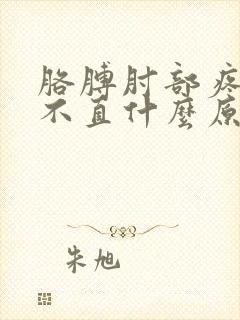 胳膊肘部疼
不直什麼原
朱旭